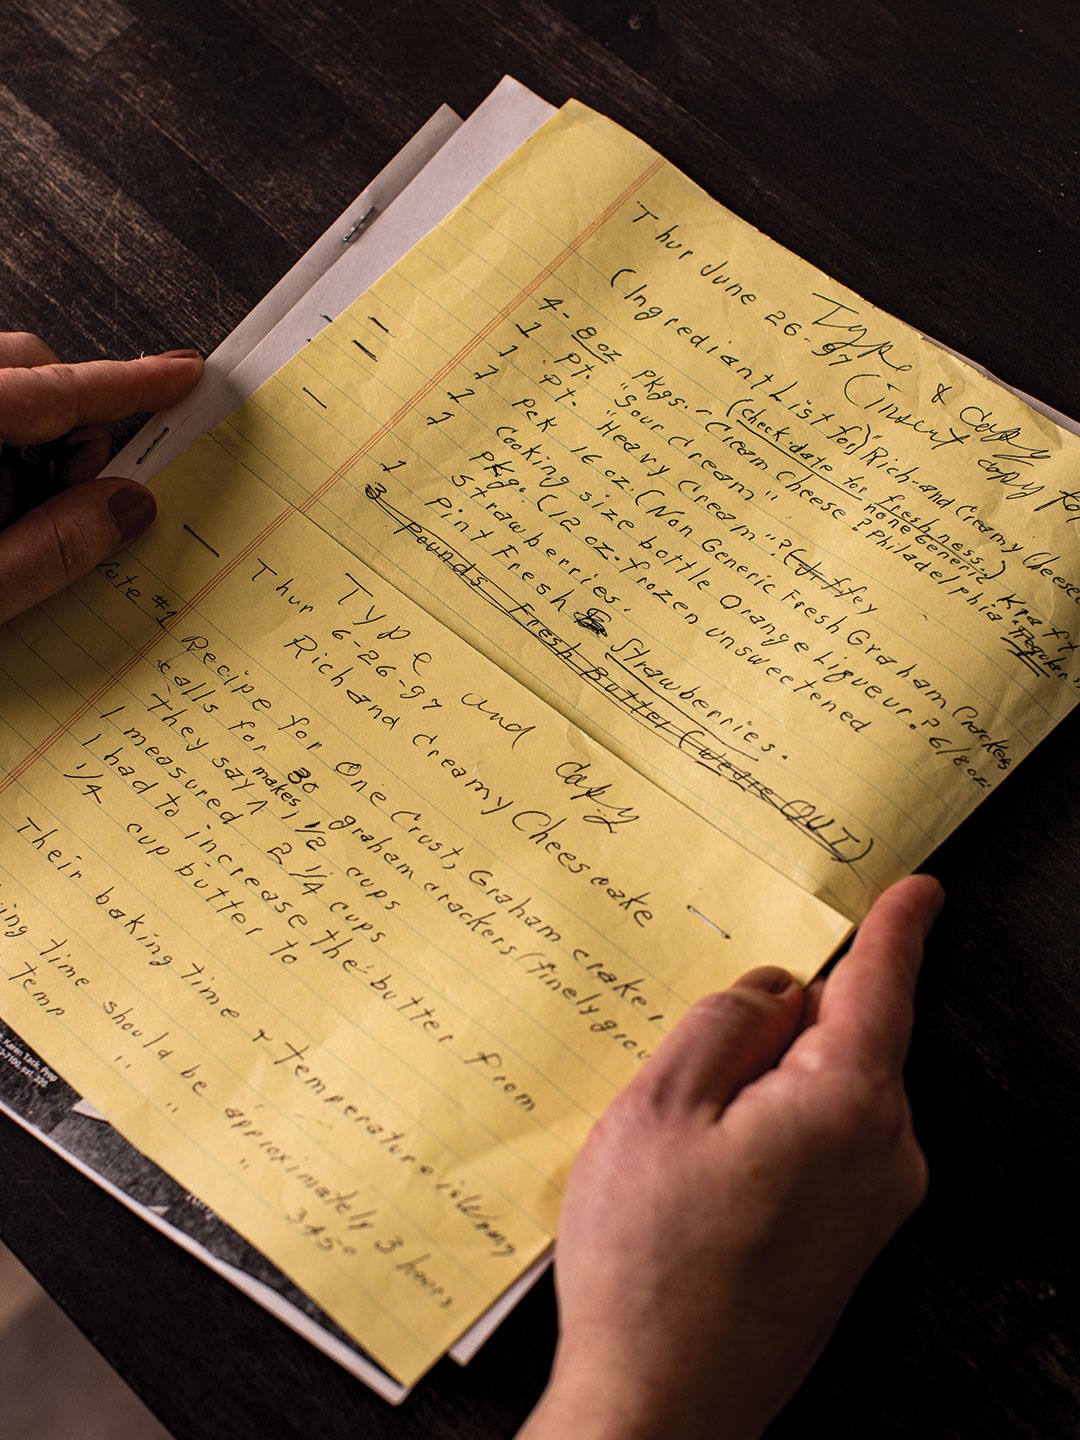 Type & Copy
Thur June 26-97 (insert copy for
(Ingrediant List for) "Rich-and Creamy Cheesec
(check date for freshness)
4 - 8 oz pkgs. Cream Cheese? Philadelphia Kraft
none generic "Regular
1 pt. "Sour Cream"
1 pt. "Heavy Cream"?
1 Pck 16 oz. (Non Generic Fresh Graham Crackers
1 cooking size bottle Orange Liqueur? 6/8oz.
1 pkg. (12 oz. frozen unsweetened
Strawberries.
1 Pint Fresh Strawberries.
3 Pounds Fresh Butter OUT)
Type and Copy
Thur 6-26-97
Rich and Creamy Cheesecake
Note #1 Recipe for One Crust, Graham craker
calls for 30 graham crackers (finely grou
They say makes, 1 1/2 cups
I measured 2 1/4 cups
I had to increase the butter from
1/4 cup butter to
Their baking time & temperature is
ing time should be approximately 3 hours
temp " " " 345°
Karen Tack, Prop